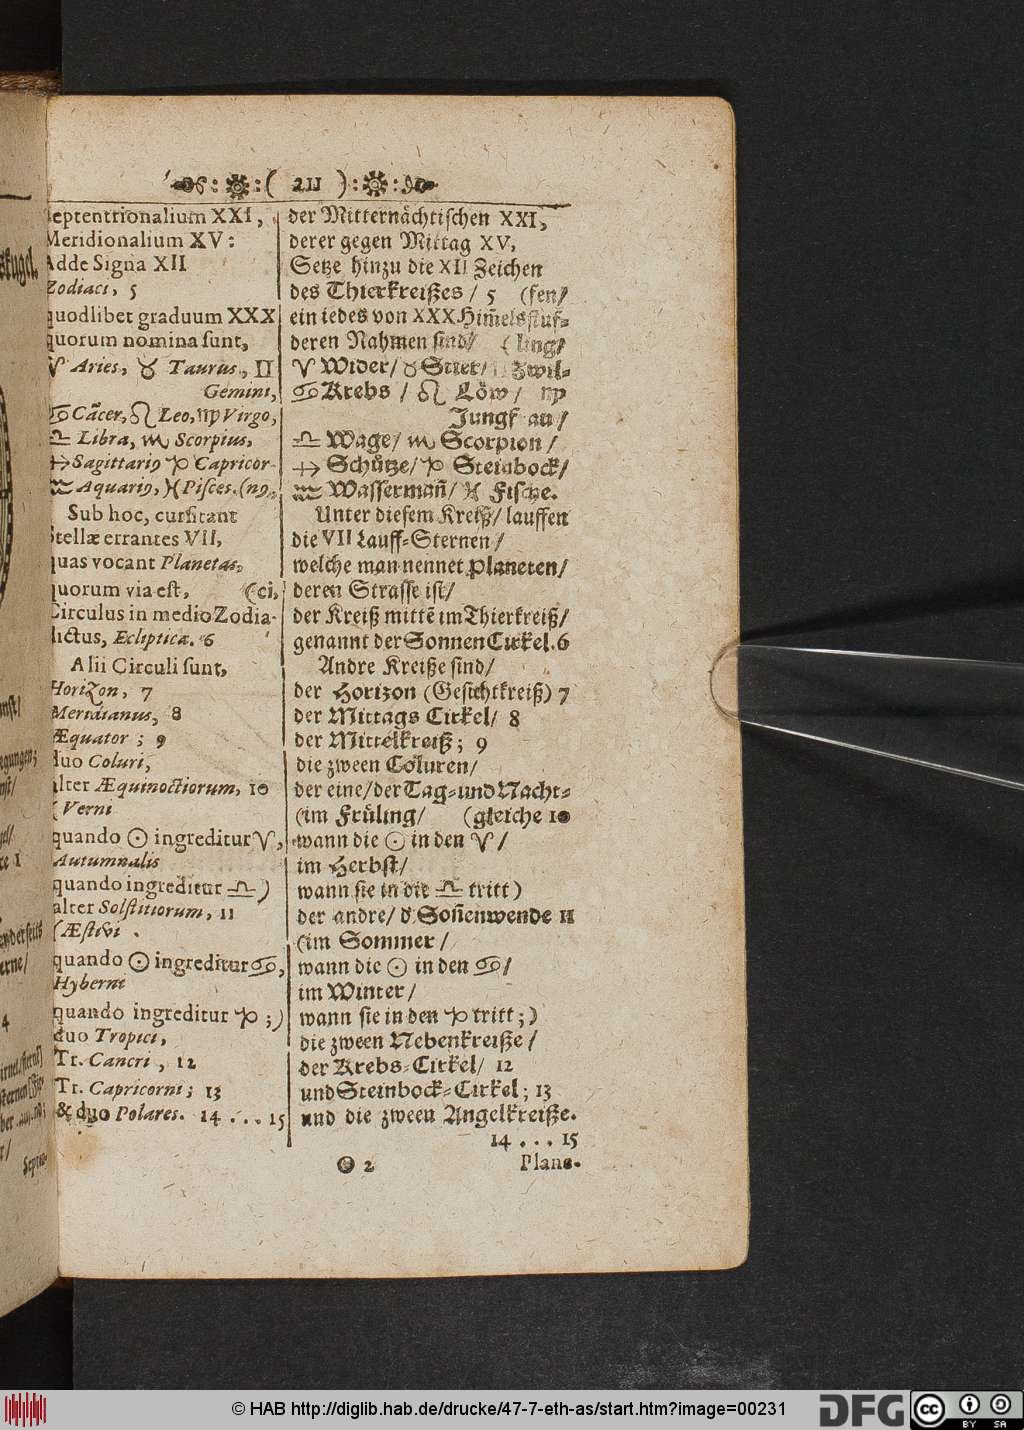 ( 211 )
septentrionalium XXI,
Meridionalium XV:
Adde Signa XII
Zodiaci, 5
quodlibet graduum XXX
quorum nomina sunt,
♈ Aries, ♉ Taurus, ♊
Gemini,
♋ Cãcer, ♌ Leo, ♍ Virgo,
♎ Libra, ♏ Scorpius,
♐ Sagittariꝰ ♑ Capricor-
♒ Aquariꝰ, ♓ Pisces. (nꝰ,
Sub hoc, cursitant
Stellæ errantes VII,
quas vocant Planetas,
quorum via est, (ci,
Circulus in medio Zodia-
dictus, Ecliptica. 6
Alii Circuli sunt,
Horizon, 7
Meridianus, 8
Æquator ; 9
duo Coluri,
alter Æquinoctiorum, 10
( Verni
quando ☉ ingreditur ♈,
Autumnalis
quando ingreditur ♎ )
alter Solstitiorum, 11
(Æstivi .
quando ☉ ingreditur ♋,
Hyberni
quando ingreditur ♑ ;)
duo Tropici,
Tr. Cancri , 12
Tr. Capricorni ; 13
& duo Polares. 14 . . . 15
der Mitternächtischen XXI,
derer gegen Mittag XV,
Setze hinzu die XII Zeichen
des Thierkreißes / 5 (fen/
ein iedes von XXX Him̃elsstuf-
deren Nahmen sind/ ( ling/
♈ Wider/ ♉ Stier/ ♊ Zwil-
♋ Krebs / ♌ Löw / ♍
Jungfrau /
♎ Wage/ ♏ Scorpion /
♐ Schütze/ ♑ Steinbock/
♒ Wasserman̄/ ♓ Fische.
Unter diesem Kreiß/ lauffen
die VII Lauff-Sternen /
welche man nennet Planeten/
deren Strasse ist/
der Kreiß mittẽ im Thierkreiß/
genannt der Sonnen Cirkel. 6
Andre Kreiße sind/
der Horizon (Gesichtkreiß) 7
der Mittags Cirkel/ 8
der Mittelkreiß ; 9
die zween Coluren/
der eine/ der Tag- und Nacht-
(im Früling/ (gleiche 10
wann die ☉ in den ♈ /
im Herbst/
wann sie in die ♎ tritt)
der andre/ ď Son̄enwende 11
(im Sommer /
wann die ☉ in den ♋/
im Winter /
wann sie in den ♑ tritt ; )
die zween Nebenkreiße /
der Krebs-Cirkel/ 12
und Steinbock-Cirkel ; 13
und die zween Angelkreiße.
14 . . . 15
O 2
Plane-
© HAB http://diglib.hab.de/drucke/47-7-eth-as/start.htm?image=00231
DFG
cc BY SA